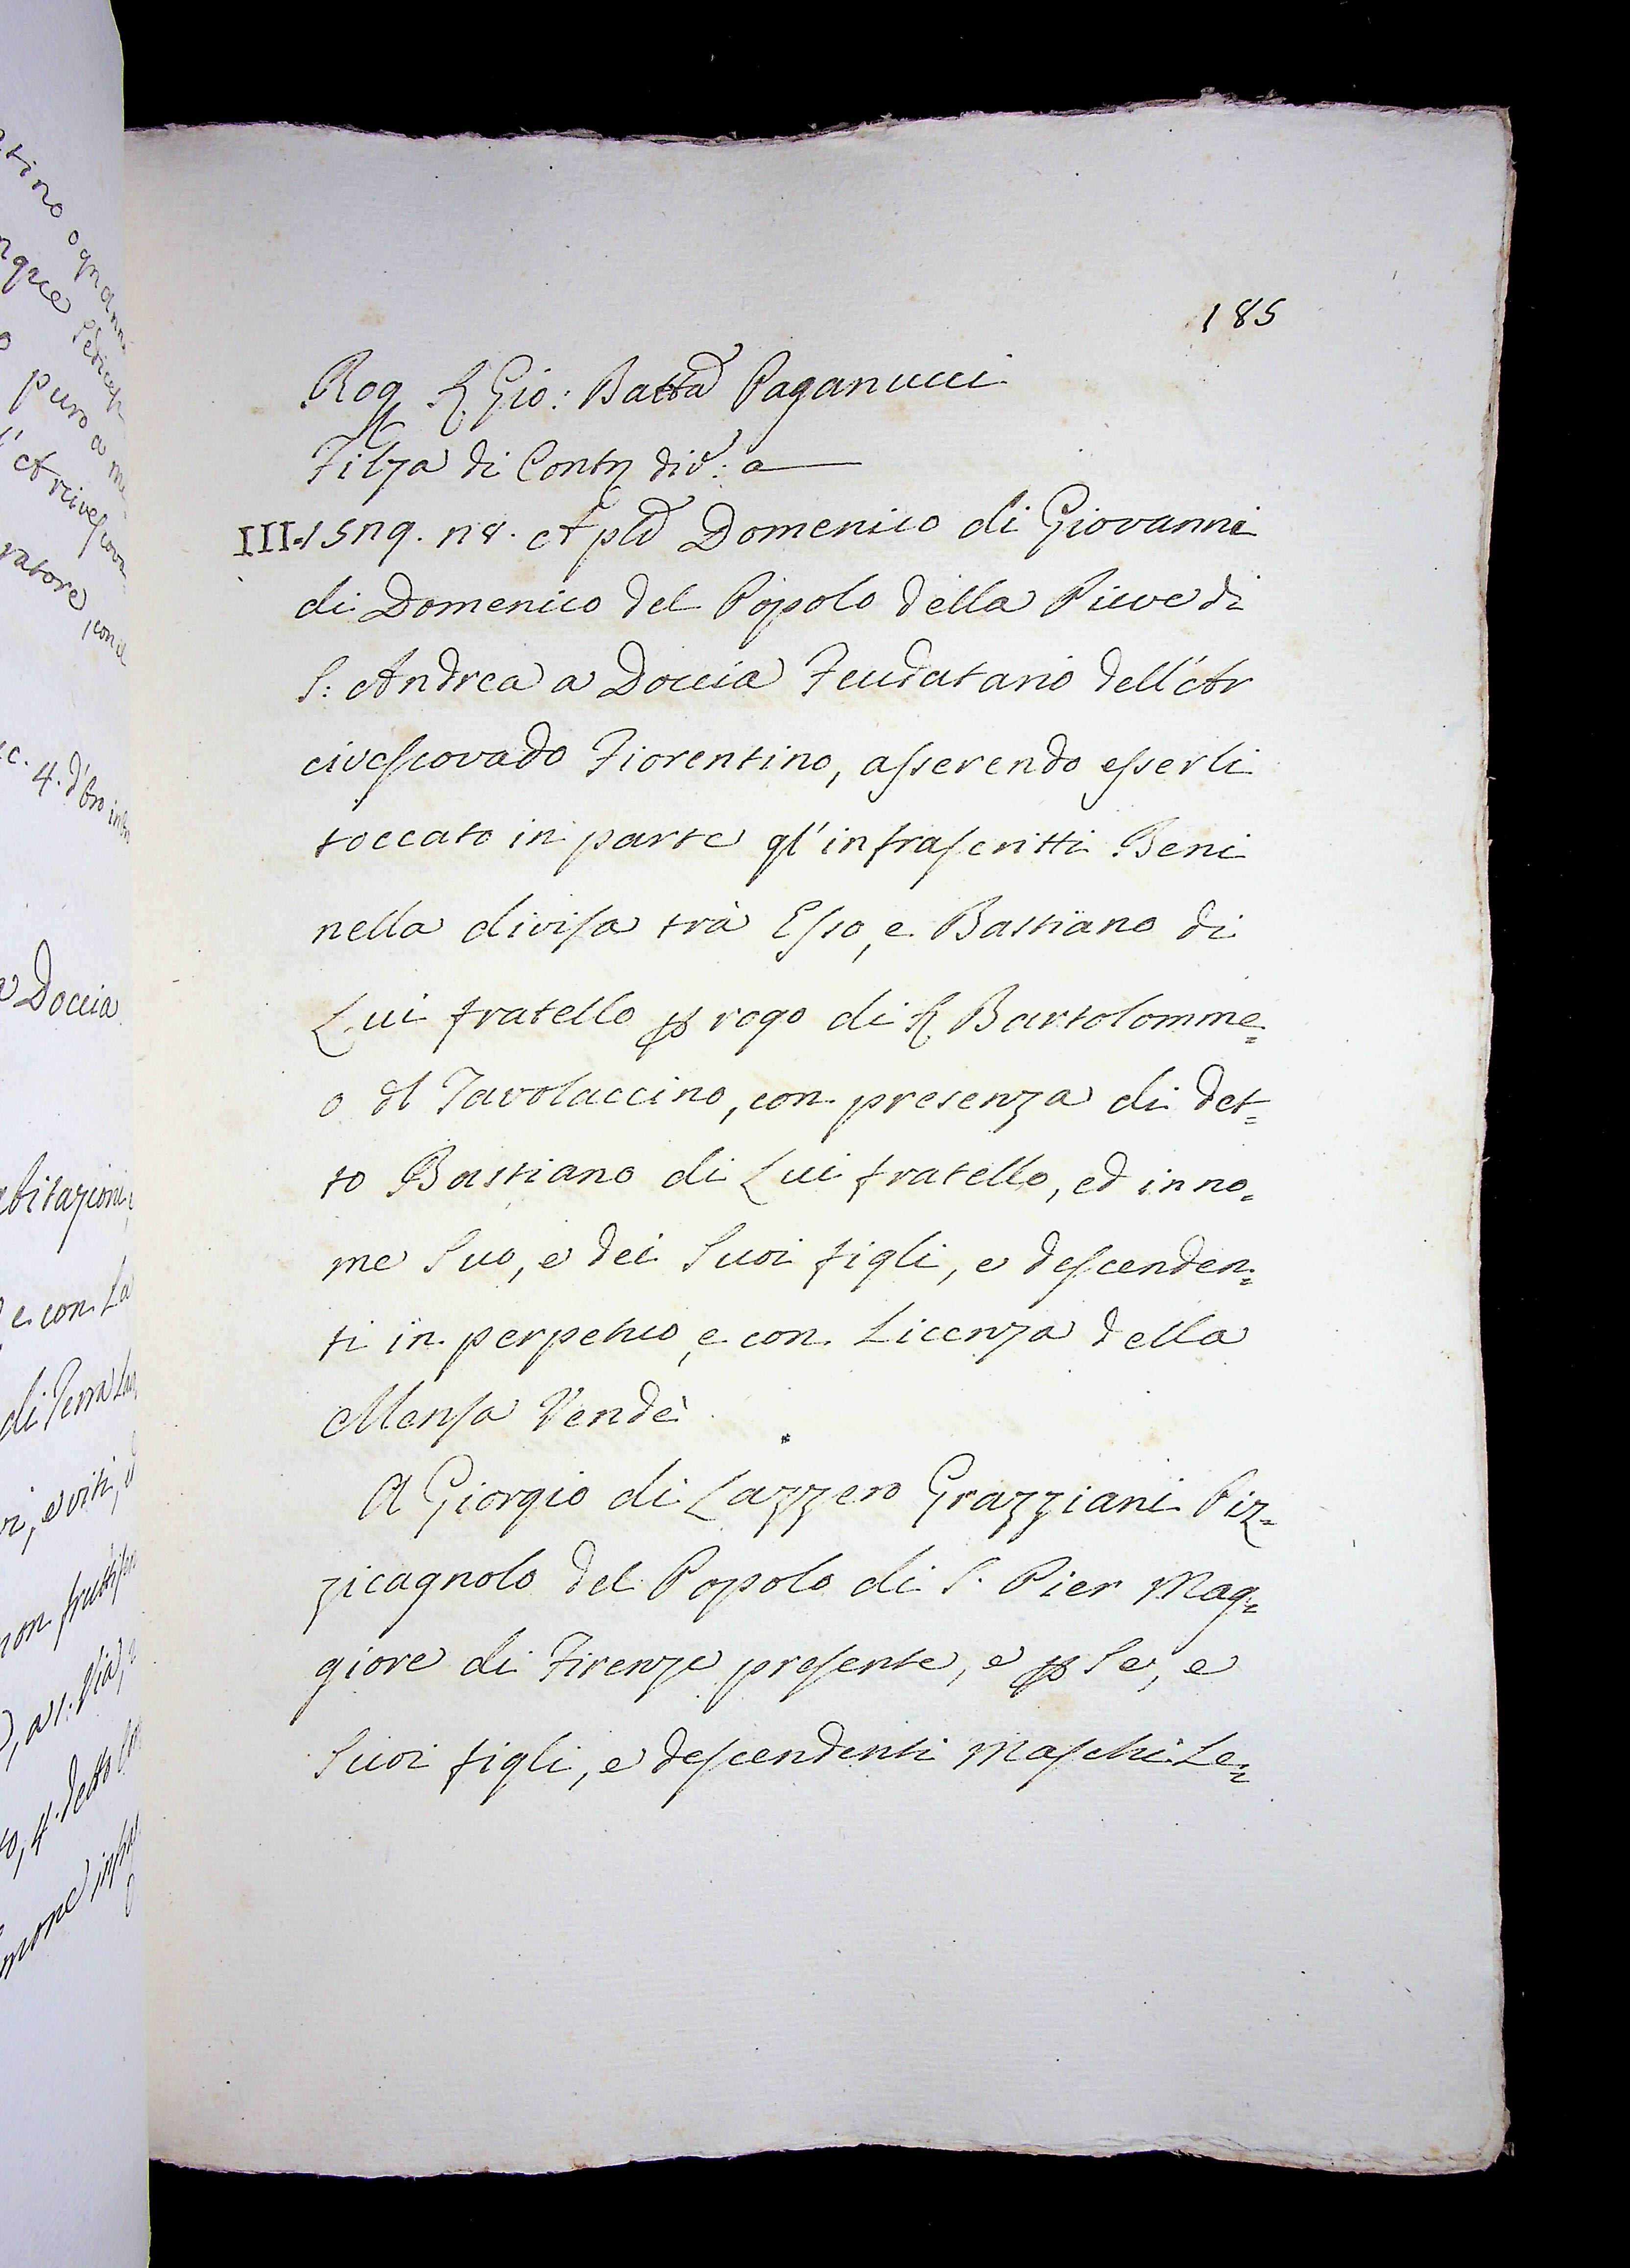 185
Rog. S. Gio: Batta Paganucci
Filza di Contr. div: a
III. 15 Aple Domenico di Giovanni
di Domenico del Popolo della Pieve di
S: Andrea a Doccia Feudatario dell'Ar
civeſcovado Fiorentino, aſserendo eſserli
toccato in parte gl'infraſcritti Beni
nella diviſa trà Eſso, e Bastiano di
Lui fratello ꝑ rogo di S. Bartolomme=
o dl Tavolaccino, con presenza di det=
to Bastiano di Lui fratello, ed in no=
me Suo, e dei Suoi figli, e deſcenden=
ti in perpetuo, e con Licenza della
Menſa Vendè
A Giorgio di Lazzero Grazziani Piz=
zicagnolo del Popolo di S. Pier Mag=
giore di Firenze preſente, e ꝑ Se, e
Suoi figli, e deſcendenti Maſchi Le=
a Doccia
e con La
di Terra